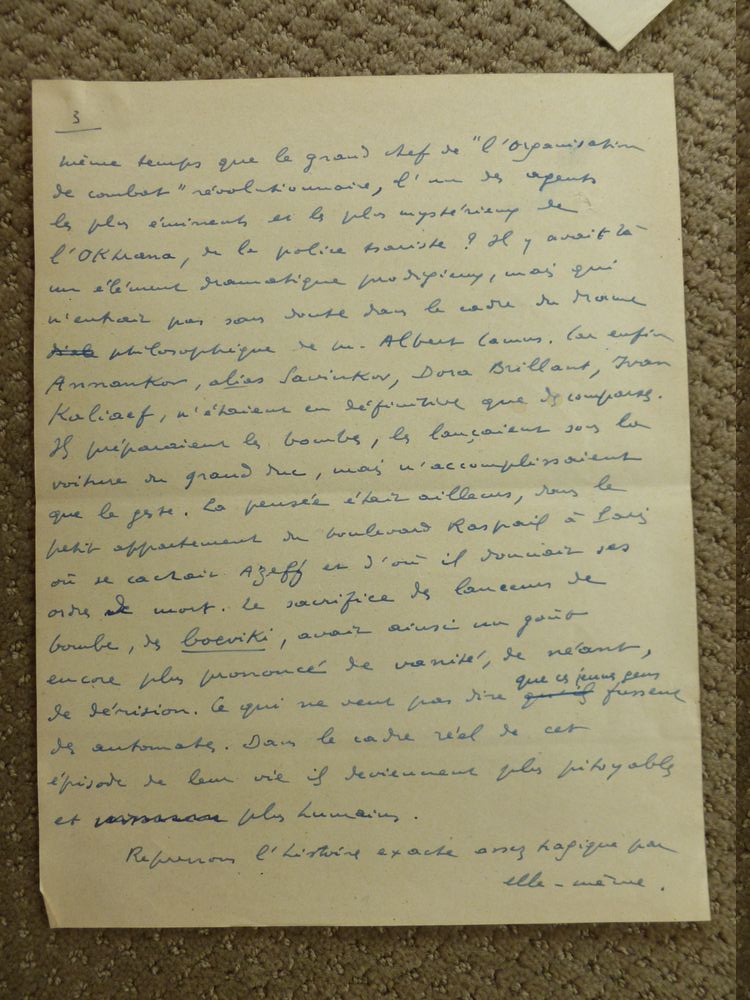 3
même temps que le grand chef de "l'Organisation
de combat" révolutionnaire, l'un des agents
les plus éminents et les plus mystérieux de
l'Okhrana, de la police tsariste ? Il y avait là
un élément dramatique prodigieux, mais qui
n'entrait pas sans doute dans le cadre du drame
philosophique de M. Albert Camus. Car enfin
Annankov, alias Savinkov, Dora Brillant, Ivan
Kaliaef, n'étaient en définitive que des comparses.
Ils préparaient les bombes, les lançaient sous la
voiture du grand duc, mais n'accomplissaient
que le geste. La pensée était ailleurs, dans le
petit appartement du boulevard Raspail à Paris
où se cachait Azeff et d'où il donnait ses
ordres de mort. Le sacrifice des lanceurs de
bombe, des boeviki, avait ainsi un goût
encore plus prononcé de vanité, de néant,
de dérision. Ce qui ne veut pas dire que ces jeunes gens fussent
des automates. Dans le cadre réel de cet
épisode de leur vie ils deviennent plus pitoyables
et plus humains.
Reprenons l'histoire exacte assez tragique par
elle-même.